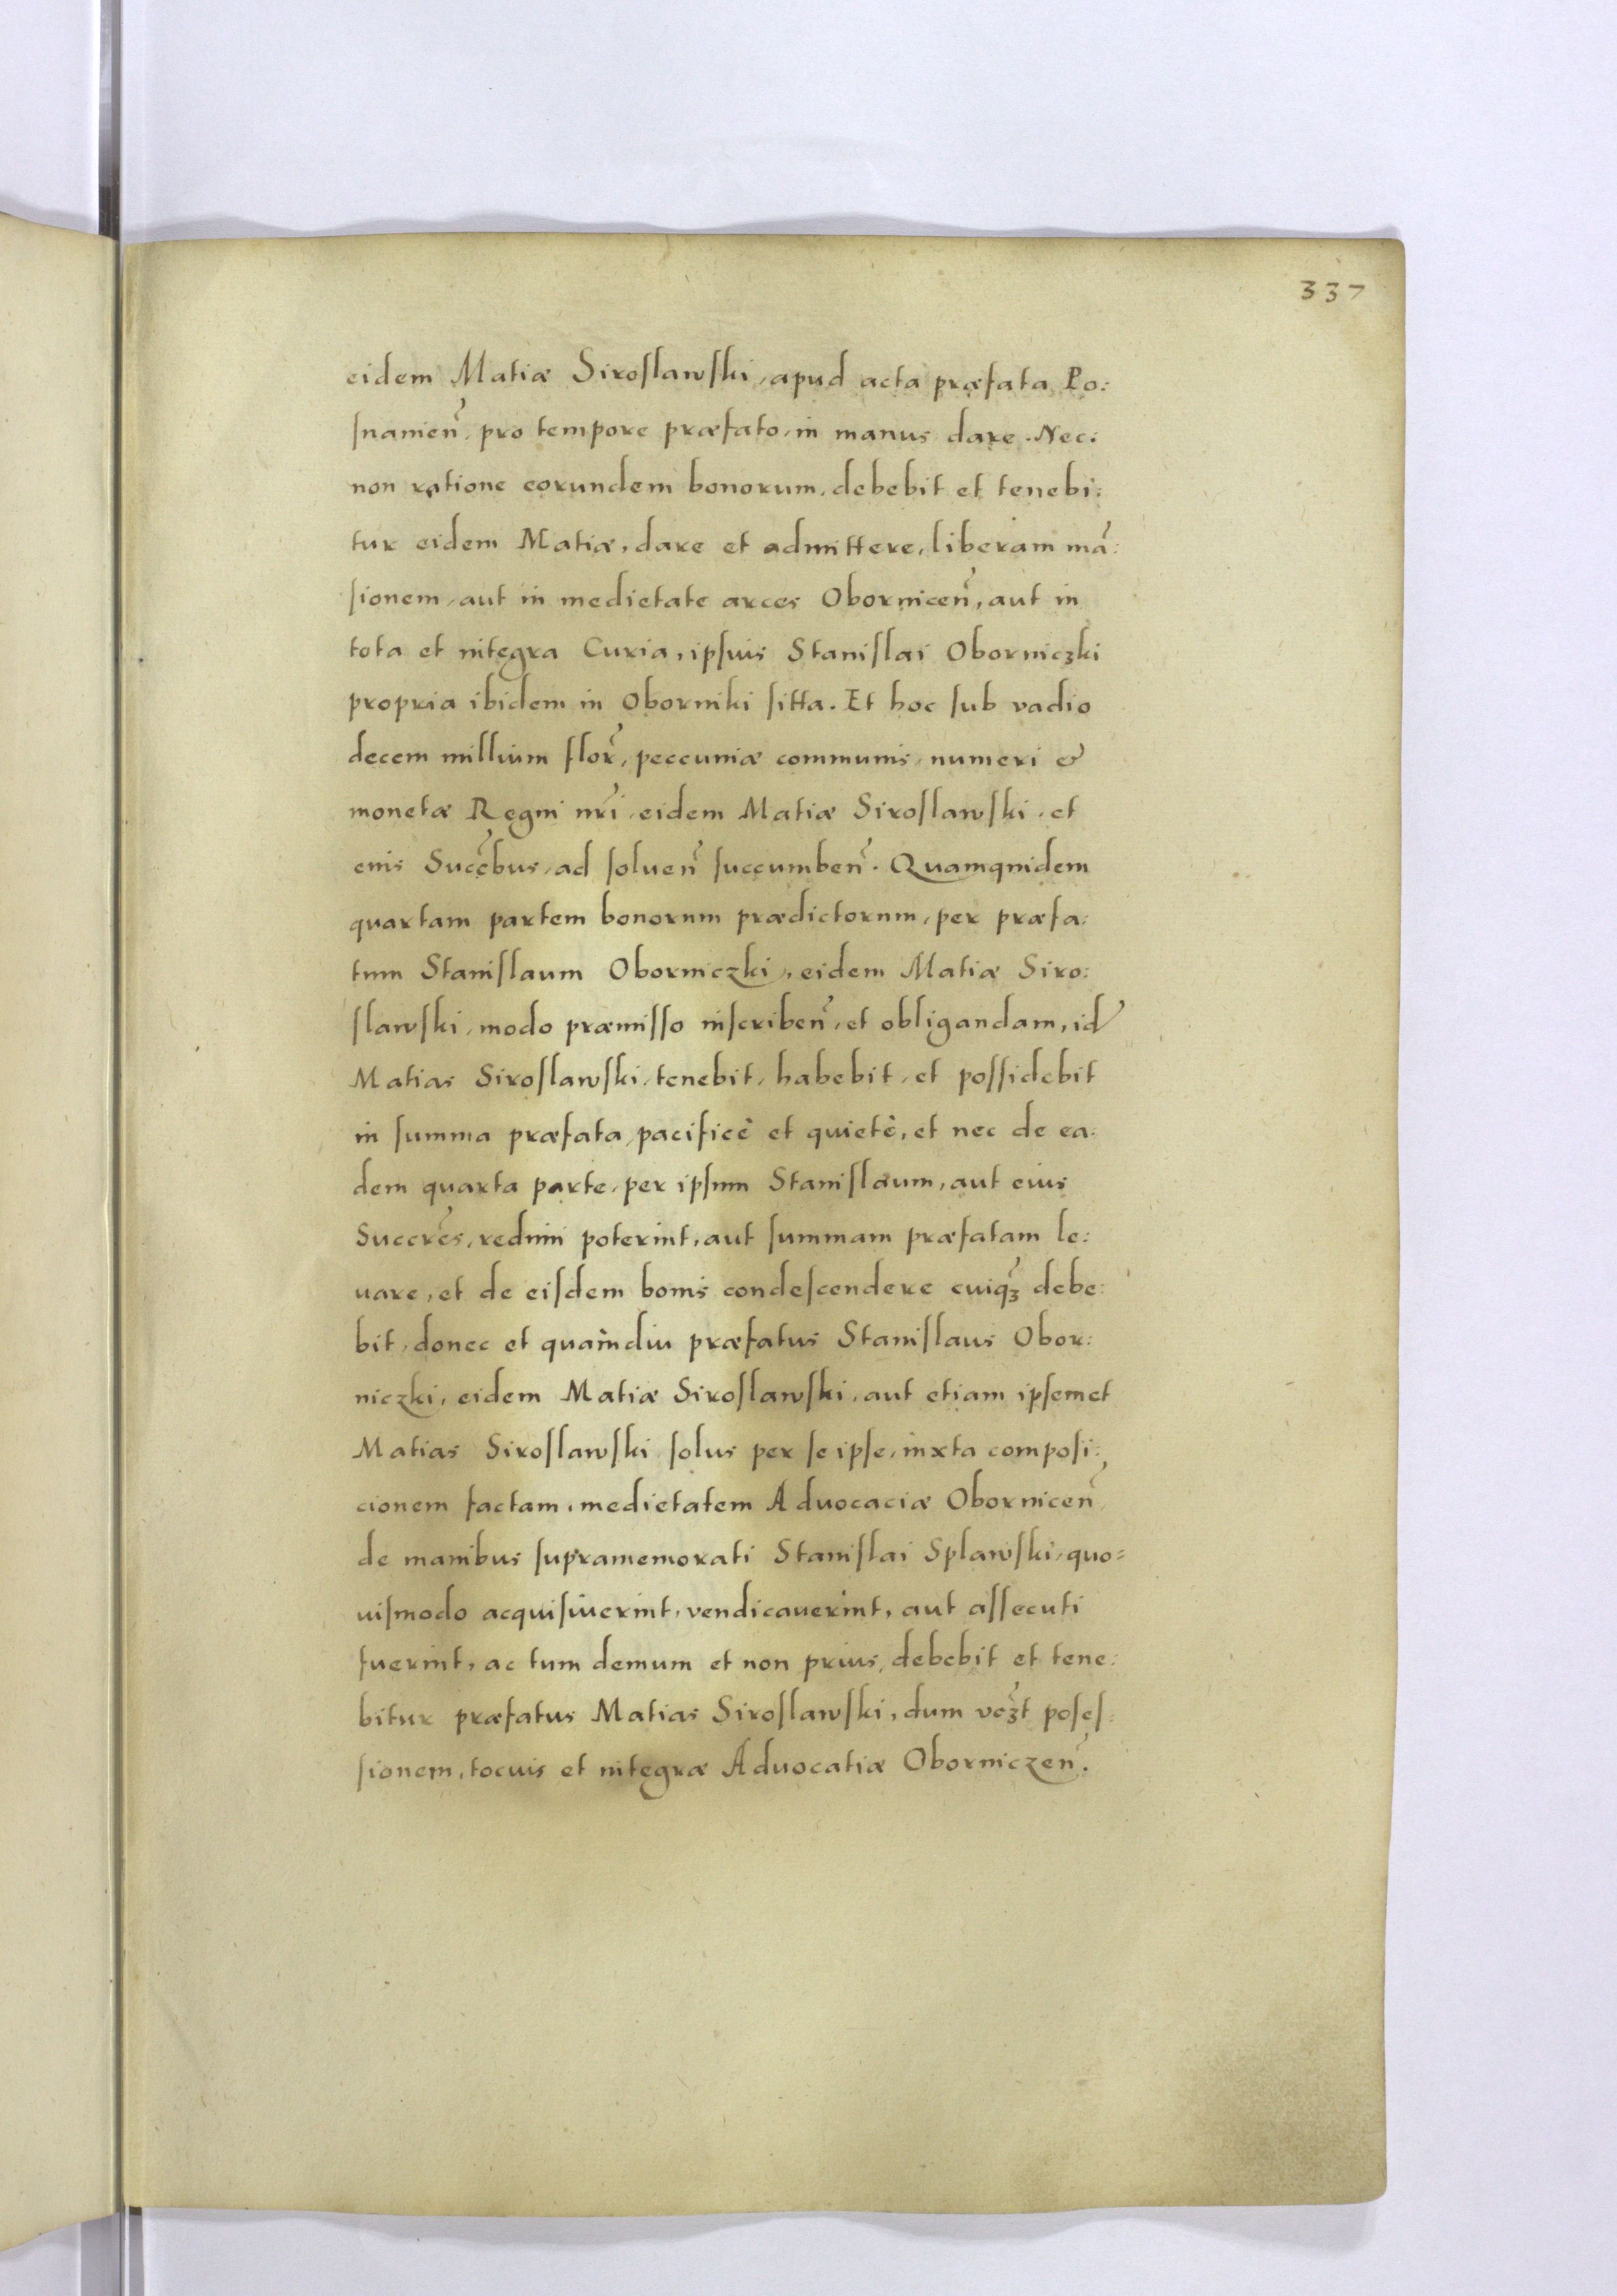 337
eidem Matiæ Siroslawski, apud acta præfata Po:
snanien̄, pro tempore præfato, in manus dare. Nec:
non ratione eorundem bonorum, debebit et tenebi:
tur eidem Matiæ, dare et admittere, liberam mā:
sionem, aut in medietate arces Obornicen̄, aut in
tota et integra Curia, ipsuis Stanislai Oborniczki
propria ibidem in Oborniki sitta. Et hoc sub vadio
decem millium flor̄, peccuniæ communis, numeri &
monetæ Regni nr̄i, eidem Matiæ Siroslawski, et
euis Succ̄bus, ad soluen̄ succumben̄. Quamquidem
quartam partem bonorum prædictorum, per præfa:
tum Stanislaum Oborniczki, eidem Matiæ Siro:
slawski, modo præmisso inscriben̄, et obligandam, id
Matias Siroslawski, tenebit, habebit, et possidebit
in summa præfata, pacificè et quietè, et nec de ea:
dem quarta parte, per ipsum Stanislaum, aut eius
Succr̄es, redimi poterint, aut summam præfatam le:
uare, et de eisdem bonis condescendere cuiqʒ̄ debe:
bit, donec et quamdiu præfatus Stanislaus Obor:
niczki, eidem Matiæ Siroslawski, aut etiam ipsemet
Matias Siroslawski solus per se ipse, iuxta composi:
cionem factam, medietatem Aduocaciæ Obornicen̄,
de manibus supramemorati Stanislai Splawski, quo=
uismodo acquisiuerint, vendicauerint, aut assecuti
fuerint, ac tum demum et non prius, debebit et tene:
bitur præfatus Matias Siroslawski, dum veʒ̄t poses:
sionem, tocuis et integræ Aduocatiæ Oborniczen̄.